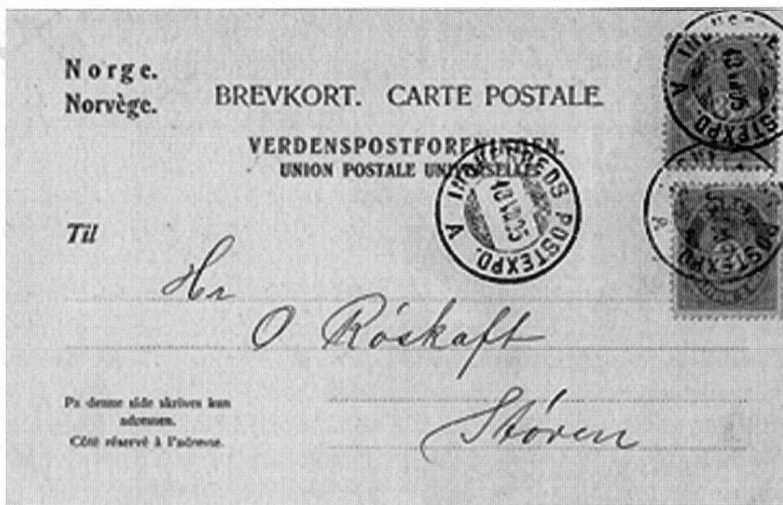 Norge.
Norvège.
BREVKORT. CARTE POSTALE.
VERDENSPOSTFORENINGEN.
UNION POSTALE UNIVERSELLE
POSTEXPD. A
INDHERREDS POSTEXPD. A
18 VII 05
POSTEXPD. A
Til
Hr
O Röskaft
Støren
Pa denne side skrives kun
adressen.
Côté réservé à l'adresse.